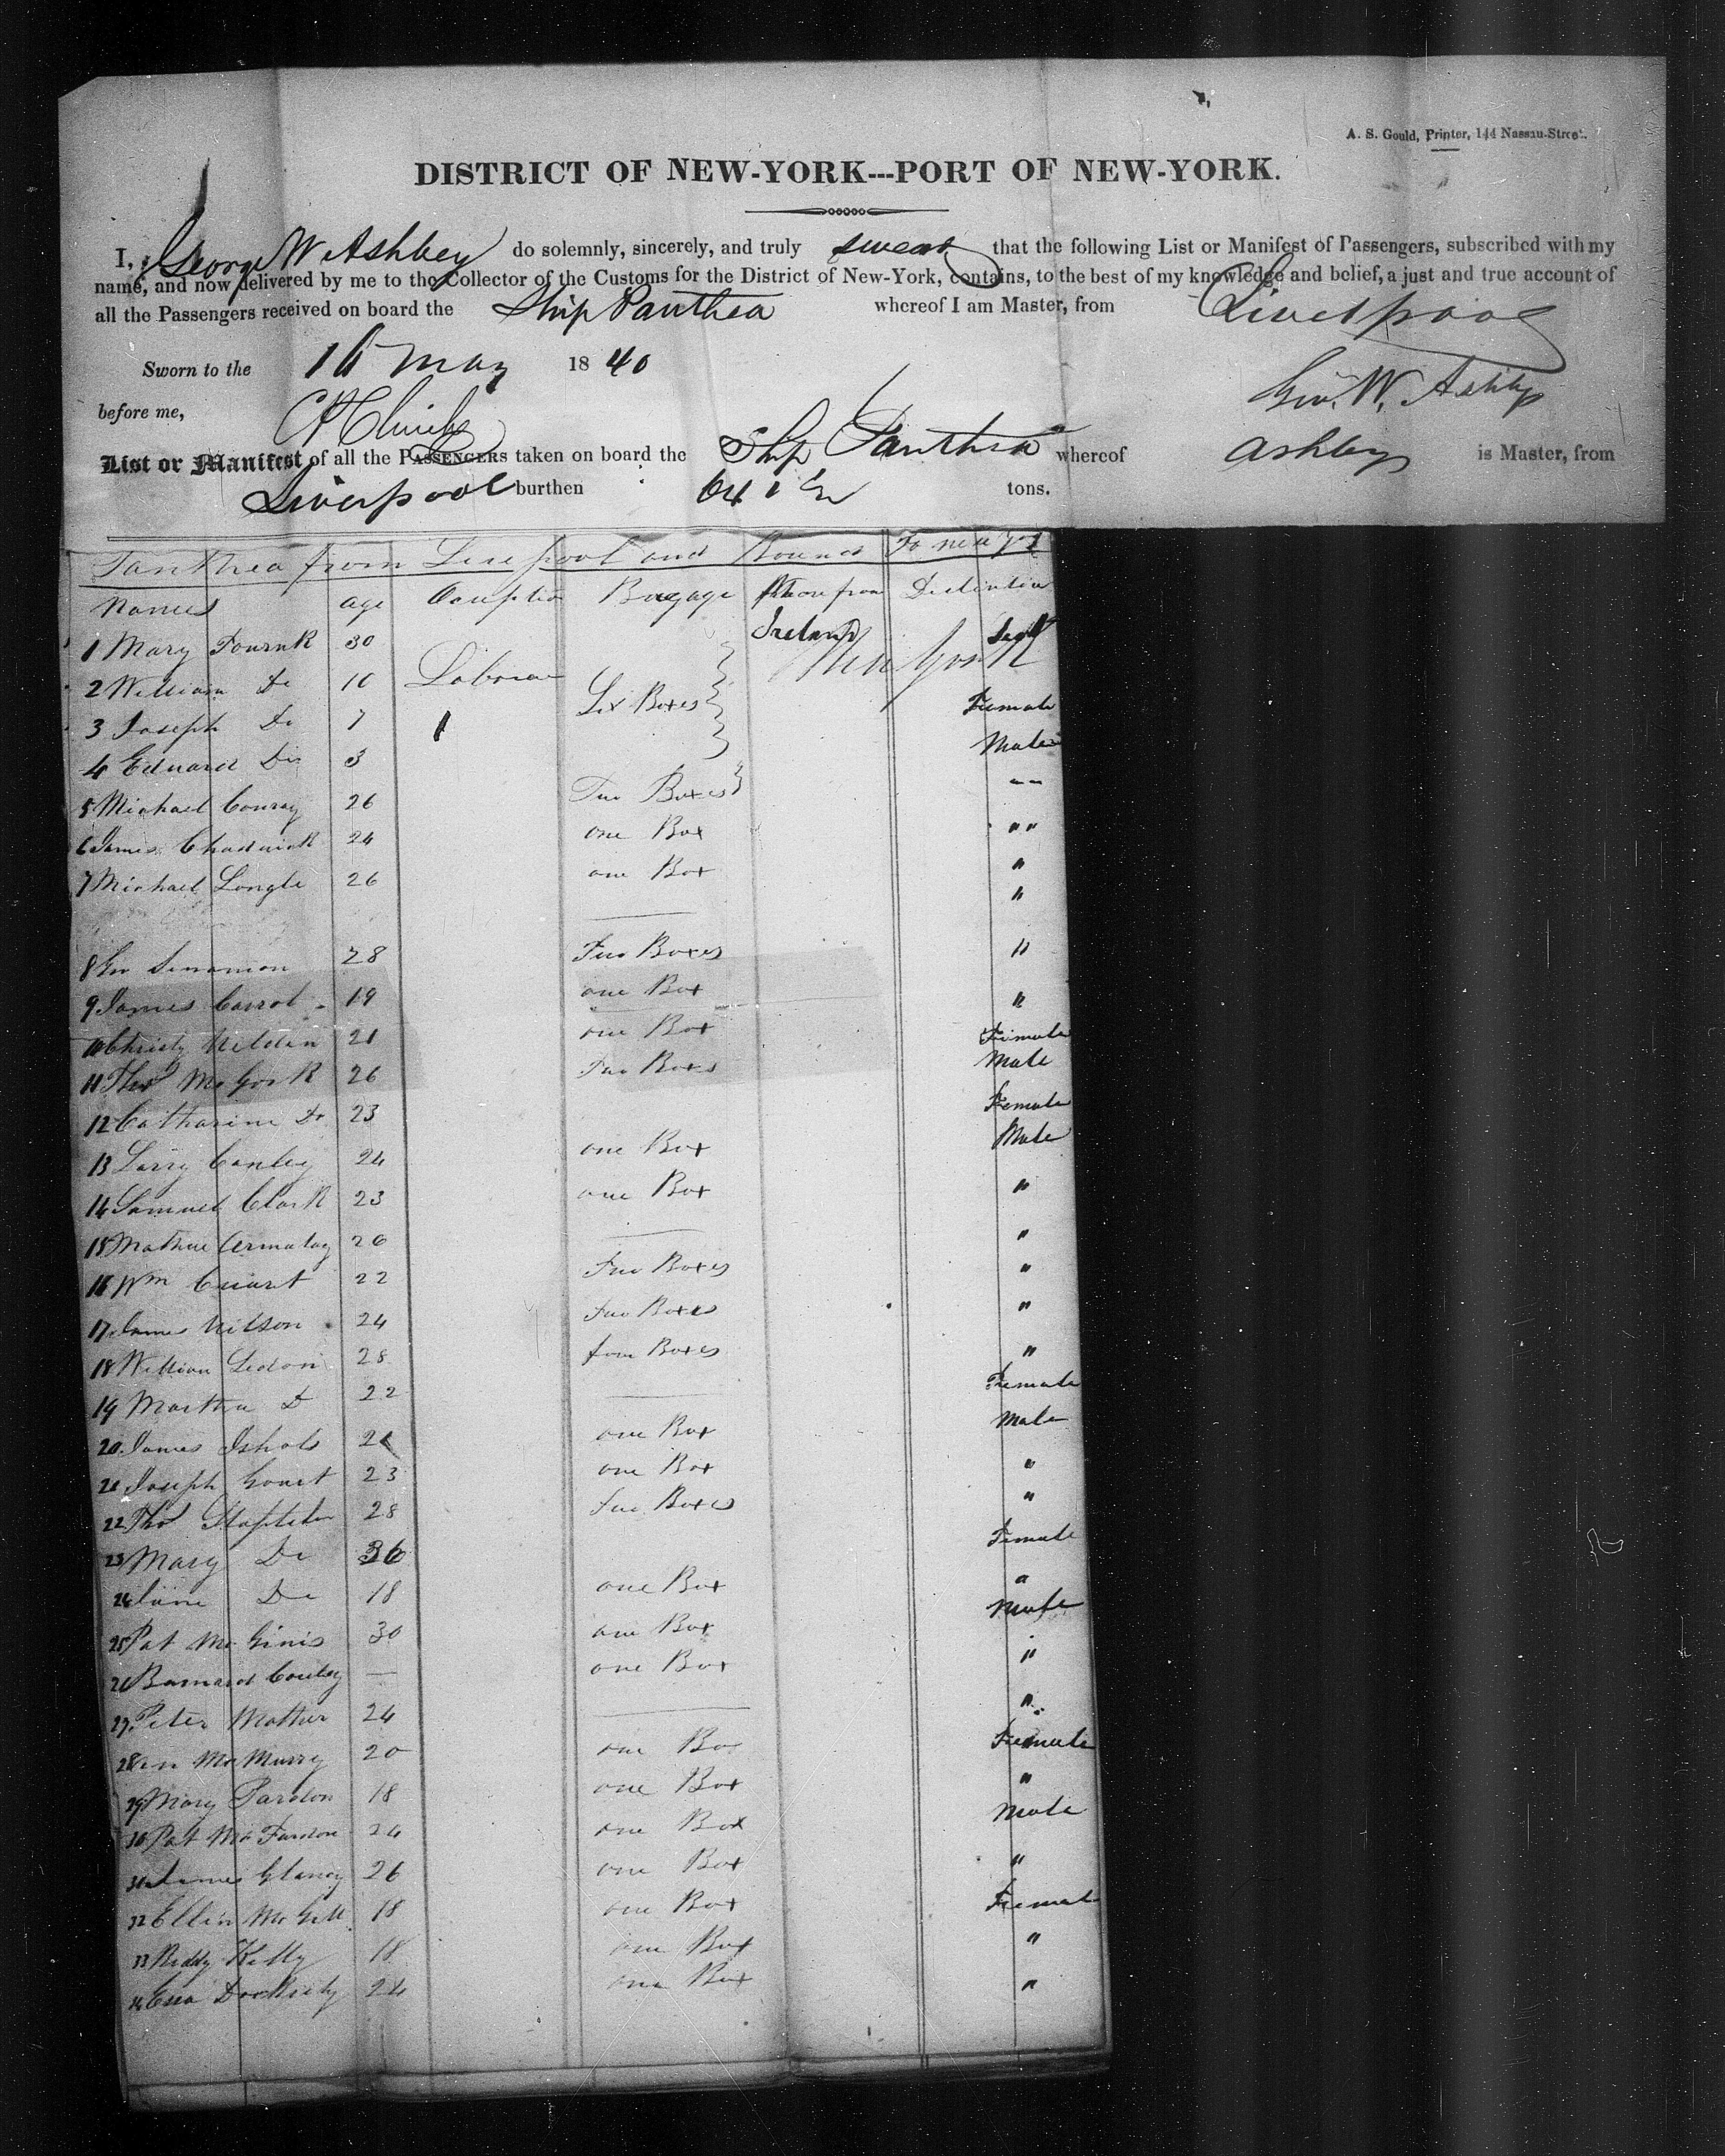 A. S. Gould, Printer, 144 Nassau-Street.
DISTRICT OF NEW-YORK---PORT OF NEW-YORK.
I, George W Ashbey do solemnly, sincerely, and truly swear that the following List or Manifest of Passengers, subscribed with my
name, and now delivered by me to the Collector of the Customs for the District of New-York, contains, to the best of my knowledge and belief, a just and true account of
all the Passengers received on board the Ship Panthea whereof I am Master, from Liverpool
Sworn to the 16 May 1840
Geo. W. Ashby
before me,
List or Manifest of all the PASSENGERS taken on board the Ship Panthea whereof Ashby is Master, from
Liverpool burthen tons.
Panthea from Liverpool and Bound To new york
Names age Bagage Where from
Ireland Sex
1 Mary 30 New York
2 William Do 10 Six Boxes Female
3 Joseph Do 7 Male
4 Edward Do 3
5 Michael Conray 26 Two Boxes
6 James Chadwick 24 one Box "
7 Michael Longle 26 one Box "
8 Geo Sinnamon 28 Two Boxes "
9 James Carrol 19 one Box "
10 Christy 21 one Box Female
11 Thos 26 Two Boxes Male
12 Catharine Do 23 Female
13 Larry Conley 24 one Box Male
14 Samuel Clark 23 one Box "
15 Mathew 26 "
16 Wm 22 Two Boxes "
17 James Nilson 24 Two Boxes "
18 William 28 four Boxes "
19 Martha D 22 Female
20 James one Box Male
21 Joseph 23 one Box "
22 Thos 28 Two Boxes "
23 Mary Do 36 Female
24 Jane Do 18 one Box "
25 Pat McGinis 30 one Box Male
26 Barnard Conley — one Box "
27 Peter Mather 24 "
28 Ann McMurry 20 one Box Female
29 Mary Pardon 18 one Box "
30 Pat 24 one Box Male
31 James Glancy 26 one Box "
32 Ellin McGill 18 one Box Female
33 Biddy Kelly 18 one Box "
34 24 one Box "